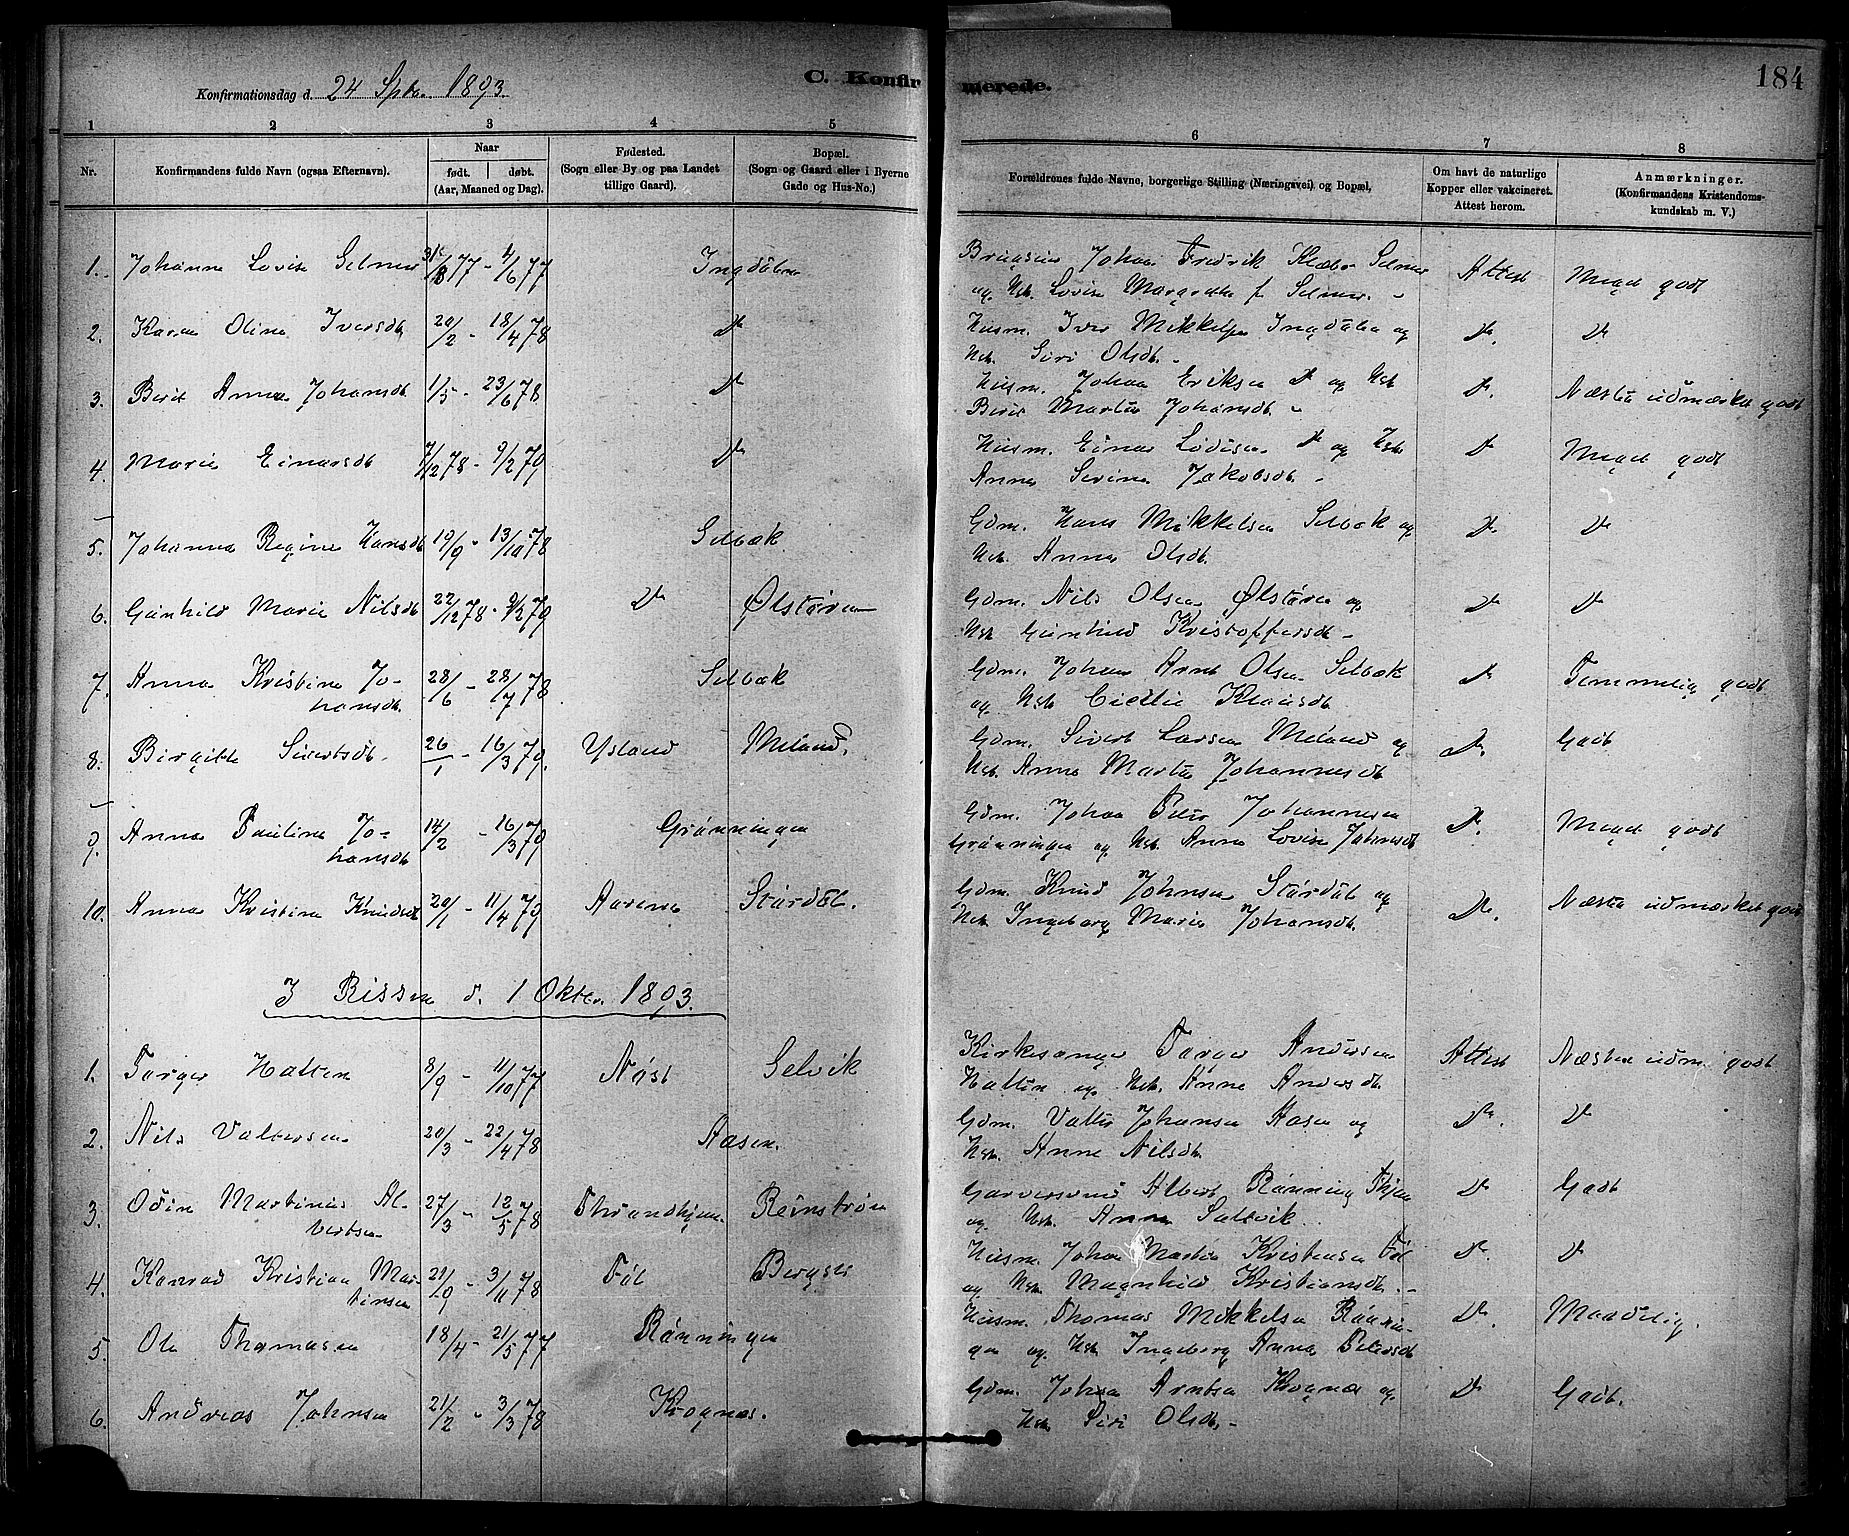 184
C. Konfirmerede.
Konfirmationsdag d. 24 Sptbr. 1893.
1 2 3 4 5 6 7 8
Nr.
Konfirmandens fulde Navn (ogsaa Efternavn).
Naar
født. døbt.
(Aar, Maaned og Dag).
Fødested.
(Sogn eller By og paa Landet
tillige Gaard).
Bopæl.
(Sogn og Gaard eller i Byerne
Gade og Hus-No.)
Forældrenes fulde Navne, borgerlige Stilling (Næringsvei) og Bopæl,
Om havt de naturlige
Kopper eller vakcineret.
Attest herom.
Anmærkninger.
(Konfirmandens Kristendoms-
kundskab m. V.)
1. Johanna Lovise Selmer 77 - 4/6 77 Ingdalen Johan Fredrik Klæbo Selmer Attest Meget godt
og Hst. Lovise Margrethe f. Selmer. -
2. Karen Olina Iversdt 20/2 - 18/4 78 Do Husm. Iver Mikkelsen Ingdalen og Do. Do
Hst. Siri Olsdt. -
3. Berit Anna Johansdt 1/5 - 23/6 78 Do Husm. Johan Eriksen Do og Hst Do. Næsten udmærket godt
Berit Marta Johansdt. -
4. Marie Einarsdt 7/12 78 - 9/2 79 Do Husm. Einar Do og Hst. Do Meget godt
Anne Serine Jakobsdt. -
5. Johanna Regine Hansdt 19/9 - 13/10 78 Selbæk. Gdm. Hans Mikkelsen Selbæk og Do Do
Hst. Anna Olsdt.
6. Gunhild Marie Nilsdt 22/12 78 - 9/2 79 Do Ølstøren Gdm. Nils Olsen Ølstøren og Do Do
Hst Gunhild Kristoffersdt -
7. Anna Kristine Jo- 28/6 - 28/7 78 Selbæk Gdm. Johan Arnt Olsen Selbæk Do Temmelig godt
hansdt. og Hst Klausdt.
8. Birgitte Sivertsdt. 26/1 - 16/3 79. Ysland Meland. Gdm. Sivert Larsen Meland og Do. Godt
Hst. Anne Marta Johannesdt
9. Anna Paulina Jo- 14/2 - 16/3 79 Grønningen Gdm. Johan Peter Johannesen Do. Meget godt
hansdt Grønningen og Hst. Anna Lovise Johnsdt
10. Anna Kristine Knudsdt 20/1 - 11/4 79 Stordal. Gdm. Knud Johnsen Stordal og Do. Næsten udmærket godt
Hst Ingeborg Marie Johansdt.
I Rissen d. 1 Oktbr. 1893.
1. Torger Hatten 8/9 - 11/10 77 Nøst Selvik Kirkesanger Torger Andersen Attest Næsten udm. godt
Hatten og Hst. Anne Andersdt
2. Nils Valtersen 20/3 - 22/4 78 Aasen. Gdm. Valter Johansen Aasen og Do. Do
Hst. Anne Nilsdt.
3. Odin Martinus Al- 27/3 - 12/5 78 Throndhjem. Reinstrøen Garversvend Albert Rønning Thjem Do Godt
bertsen og Hst. Anne Saltvik.
4. Konrad Kristian Mar- 21/9 - 3/11 78 Føl Husm. Johan Martin Kristensen Føl Do. Do
tinsen og Hst Magnhild Kristiansdt. -
5. Ole Thomasen 18/4 - 21/5 77 Rønningen Husm. Thomas Mikkelsen Rønnin- Do. Maadelig.
gen og Hst Ingeborg Anna Petersdt
6. Andreas Johnsen 21/2 - 3/3 78 Krognes. Gdm. Johan Arntsen Krognes og Do Godt.
Hst. Siri Olsdt. -